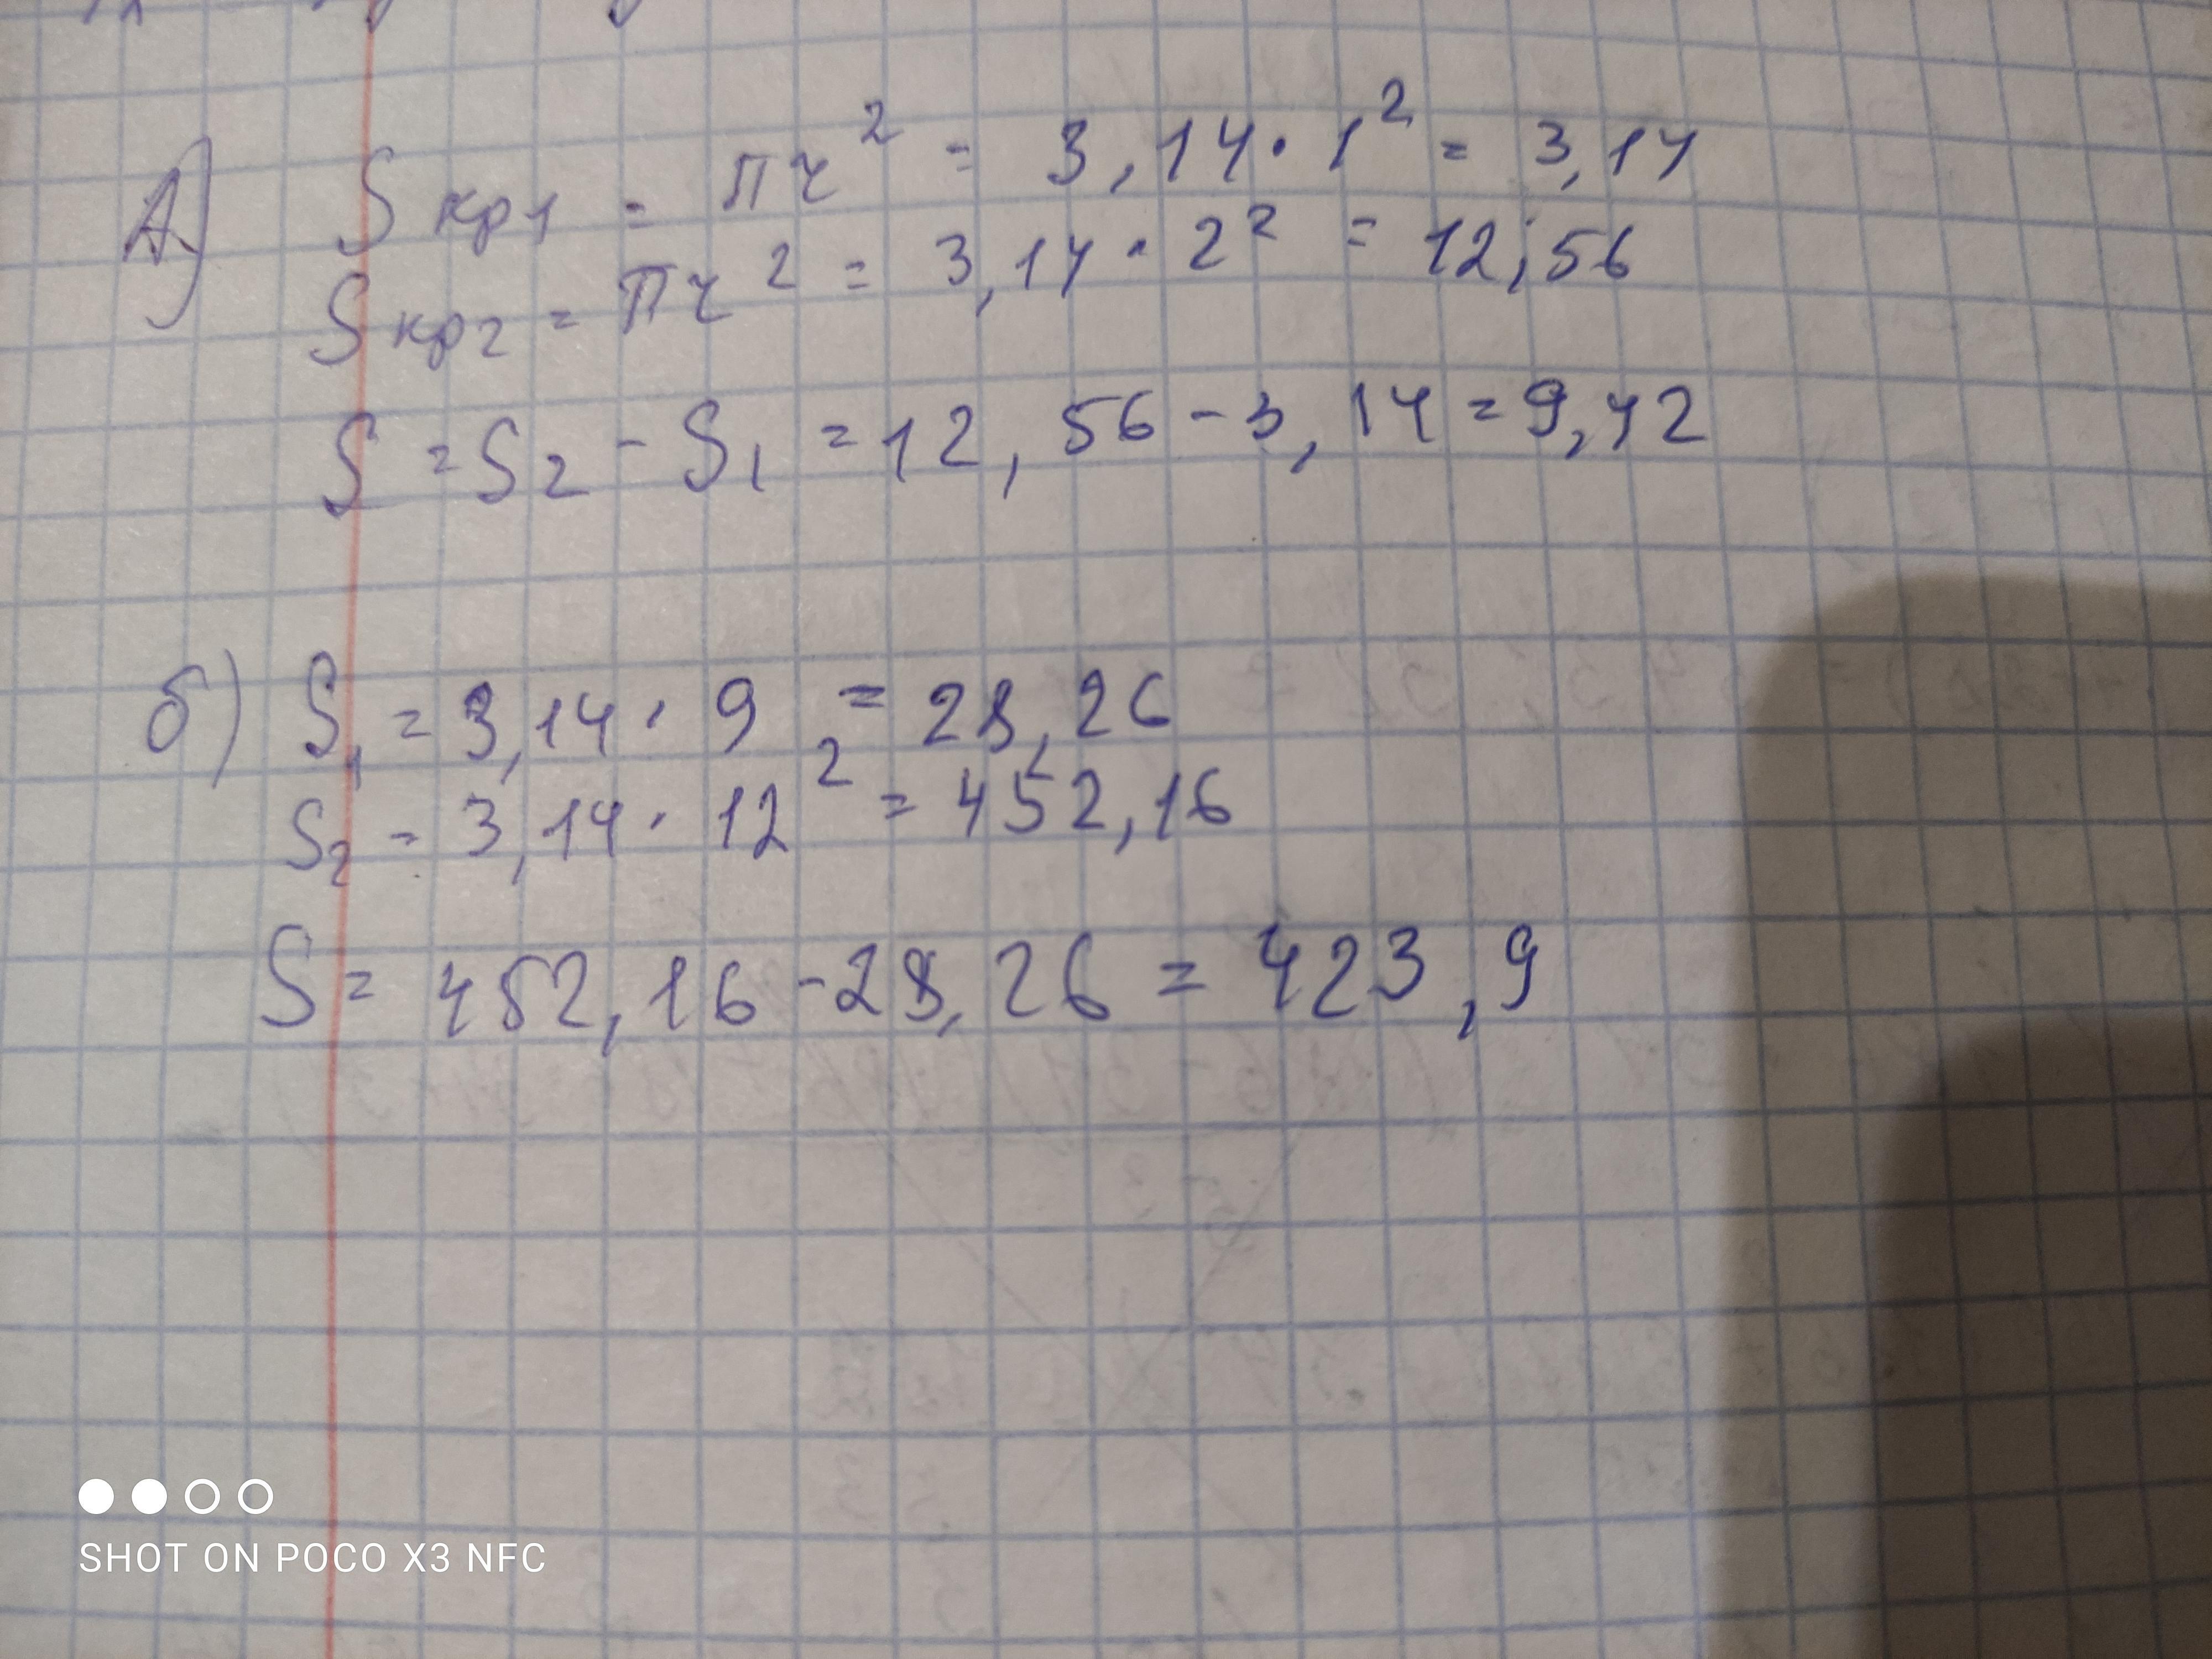 А) Sкр1 = πr² = 3,14 · 1² = 3,14
Sкр2 = πr² = 3,14 · 2² = 12,56
S = S₂ - S₁ = 12,56 - 3,14 = 9,42
б) S₁ = 3,14 · 9 = 28,26
S₂ = 3,14 · 12² = 452,16
S = 452,16 - 28,26 = 423,9
SHOT ON POCO X3 NFC